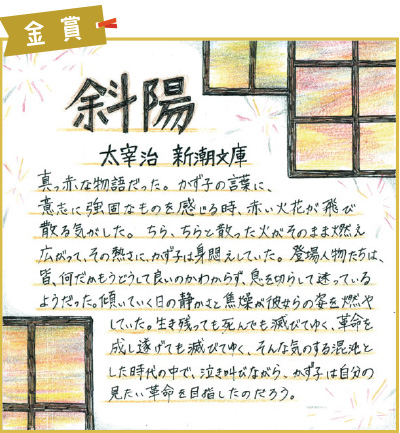 金賞
斜陽
太宰治 新潮文庫
真っ赤な物語だった。かず子の言葉に、
意志に強固なものを感じる時、赤い火花が飛び
散る気がした。ちら、ちらと散った火がそのまま燃え
広がって、その熱さに、かず子は身悶えしていた。登場人物たちは、
皆、何だかもうどうして良いのかわからず、息を切らして迷っている
ようだった。傾いていく日の静かさと焦燥が彼女らの姿を燃や
していた。生き残っても死んでも滅びてゆく、革命を
成し遂げても滅びてゆく、そんな気のする混沌と
した時代の中で、泣き叫びながら、かず子は自分の
見たい革命を目指したのだろう。